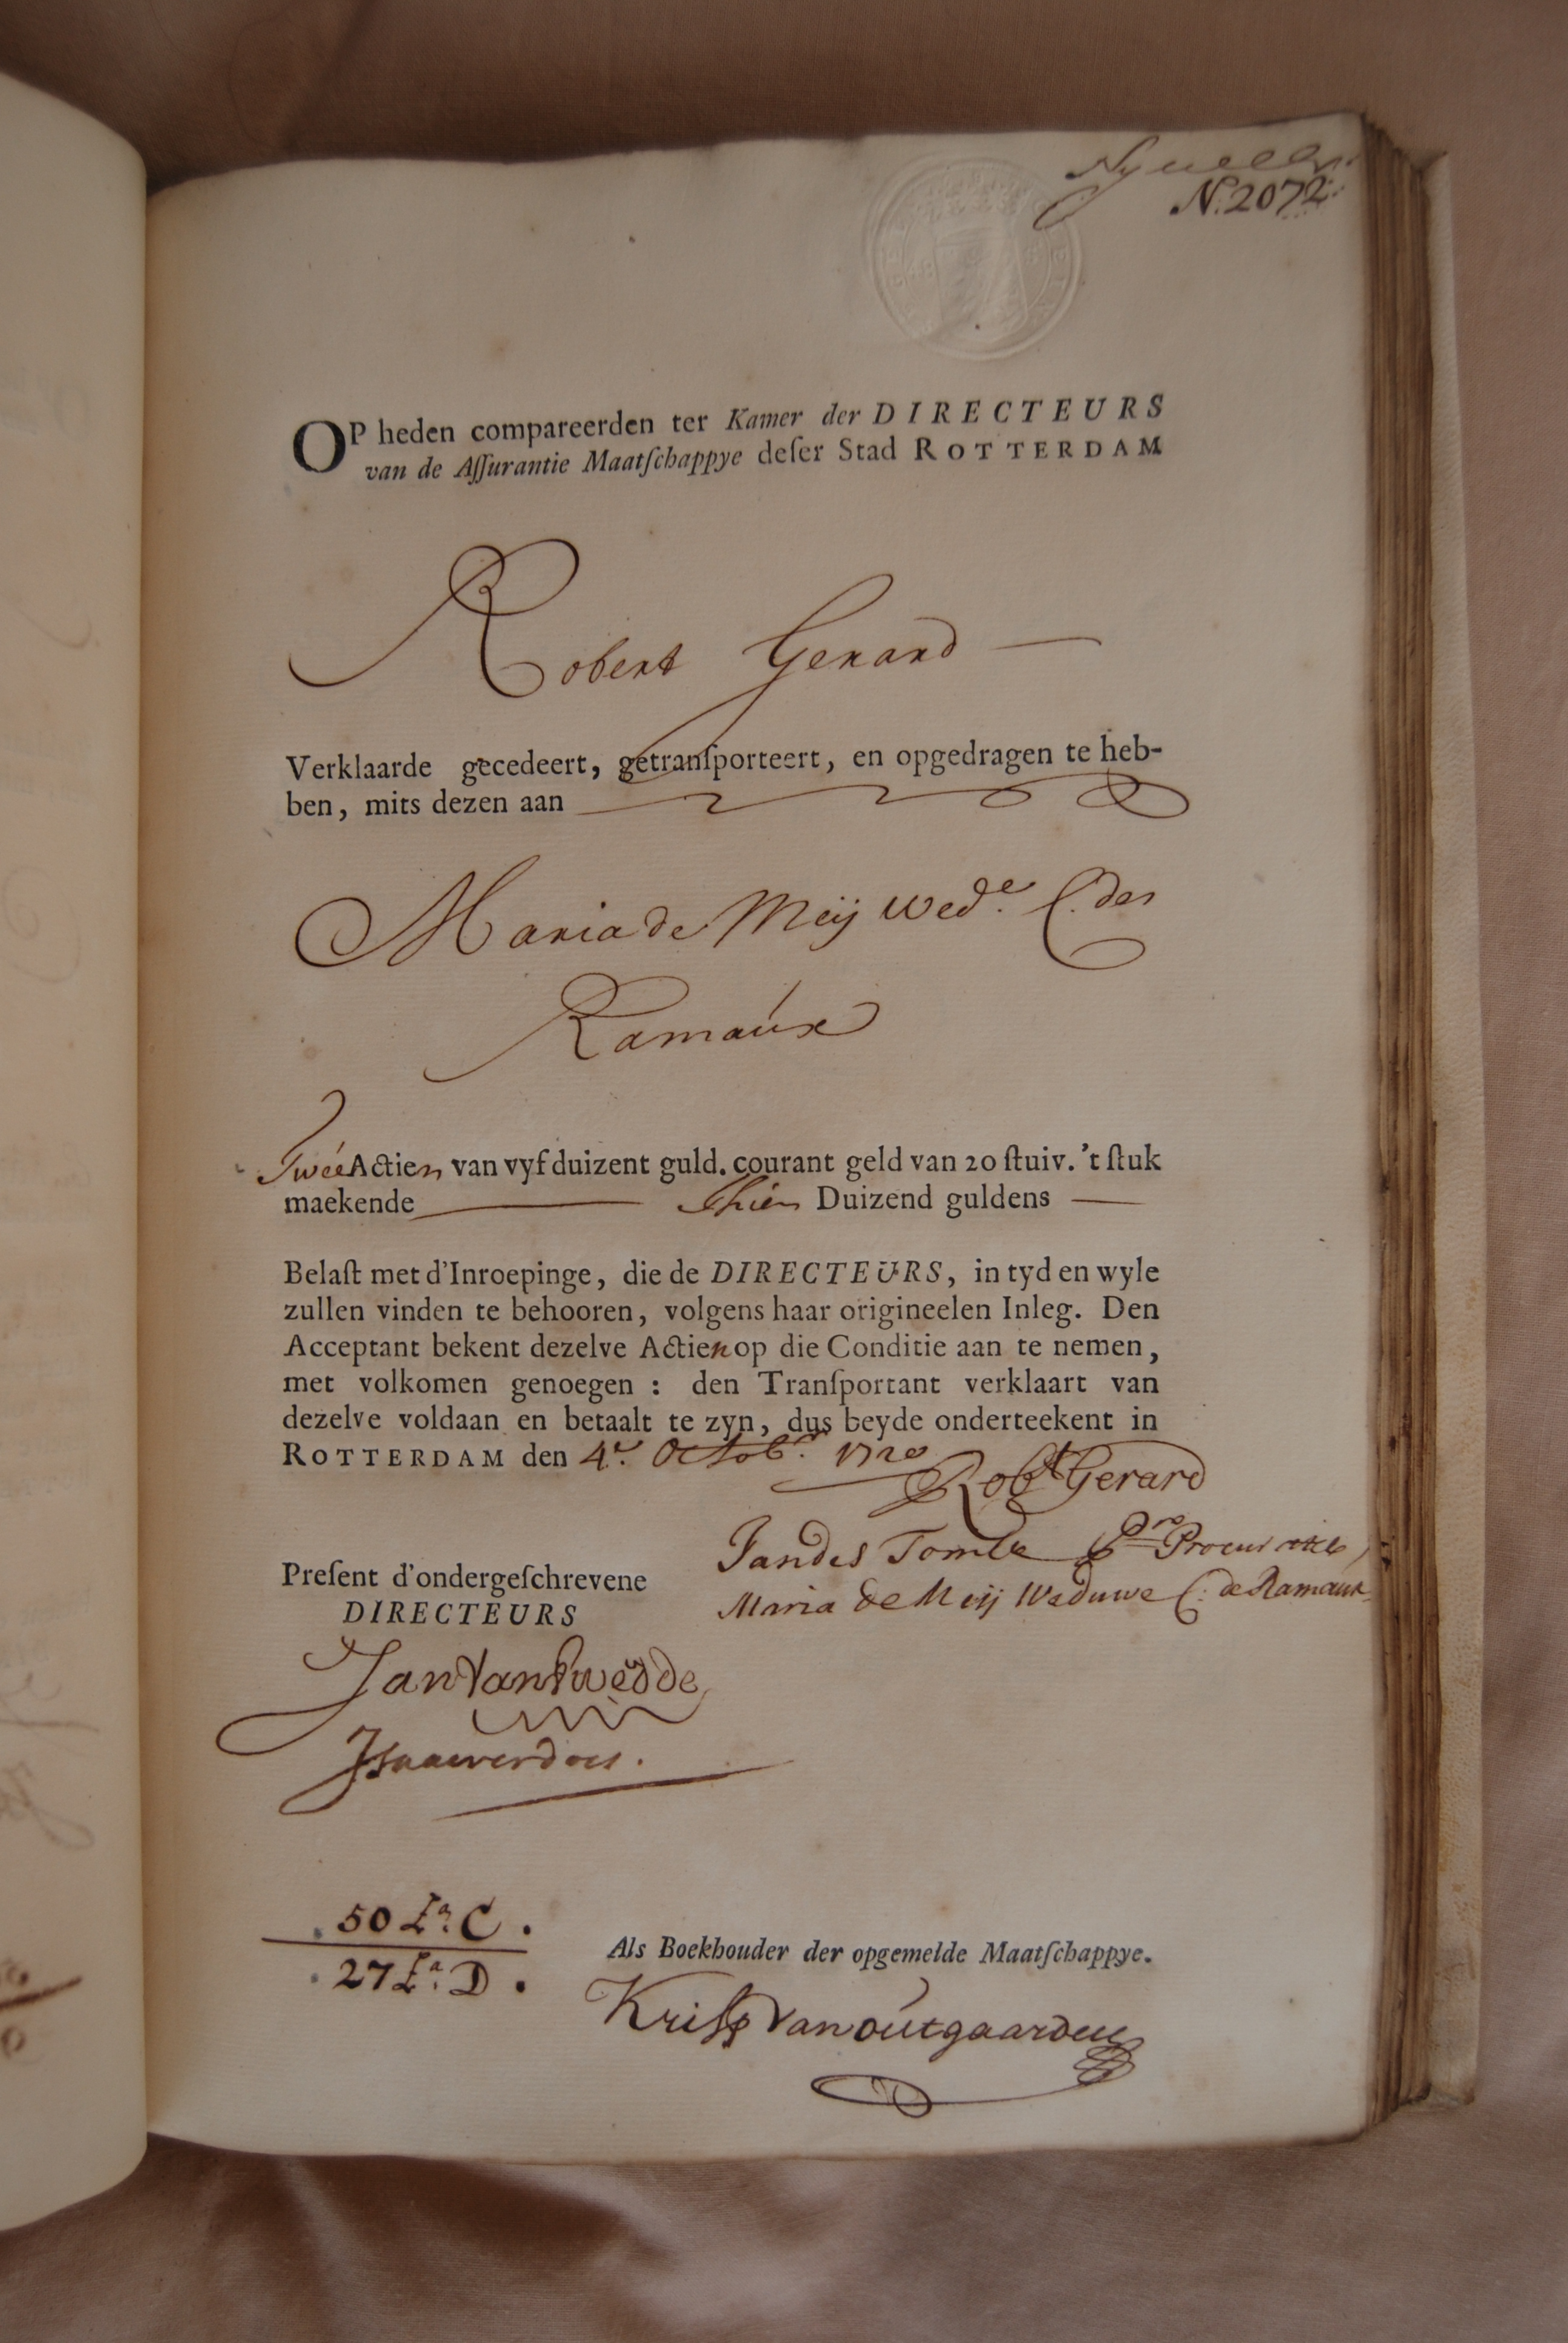 N. 2072
OP heden compareerden ter Kamer der DIRECTEURS
van de Aſſurantie Maatſchappye deſer Stad ROTTERDAM
Robert Gerard
Verklaarde gecedeert, getranſporteert, en opgedragen te heb-
ben, mits dezen aan
Maria de Meij wed.e C. der
Ramaùx
Twée Actien van vyf duizent guld. courant geld van 20 ſtuiv. 't ſtuk
maekende Thien Duizend guldens
Belaſt met d'Inroepinge, die de DIRECTEURS, in tyd en wyle
zullen vinden te behooren, volgens haar origineelen Inleg. Den
Acceptant bekent dezelve Actien op die Conditie aan te nemen,
met volkomen genoegen : den Tranſportant verklaart van
dezelve voldaan en betaalt te zyn, dus beyde onderteekent in
ROTTERDAM den 4.e Octob.r 1720
Rob.t Gerard
Jan des Tombe
Maria de Meij Weduwe C: de Ramaux
Preſent d'ondergeſchrevene
DIRECTEURS
Jan Van
50 L.a C.
27 L.a D.
Als Boekhouder der opgemelde Maatſchappye.
Kriſp Van oùtgaarden